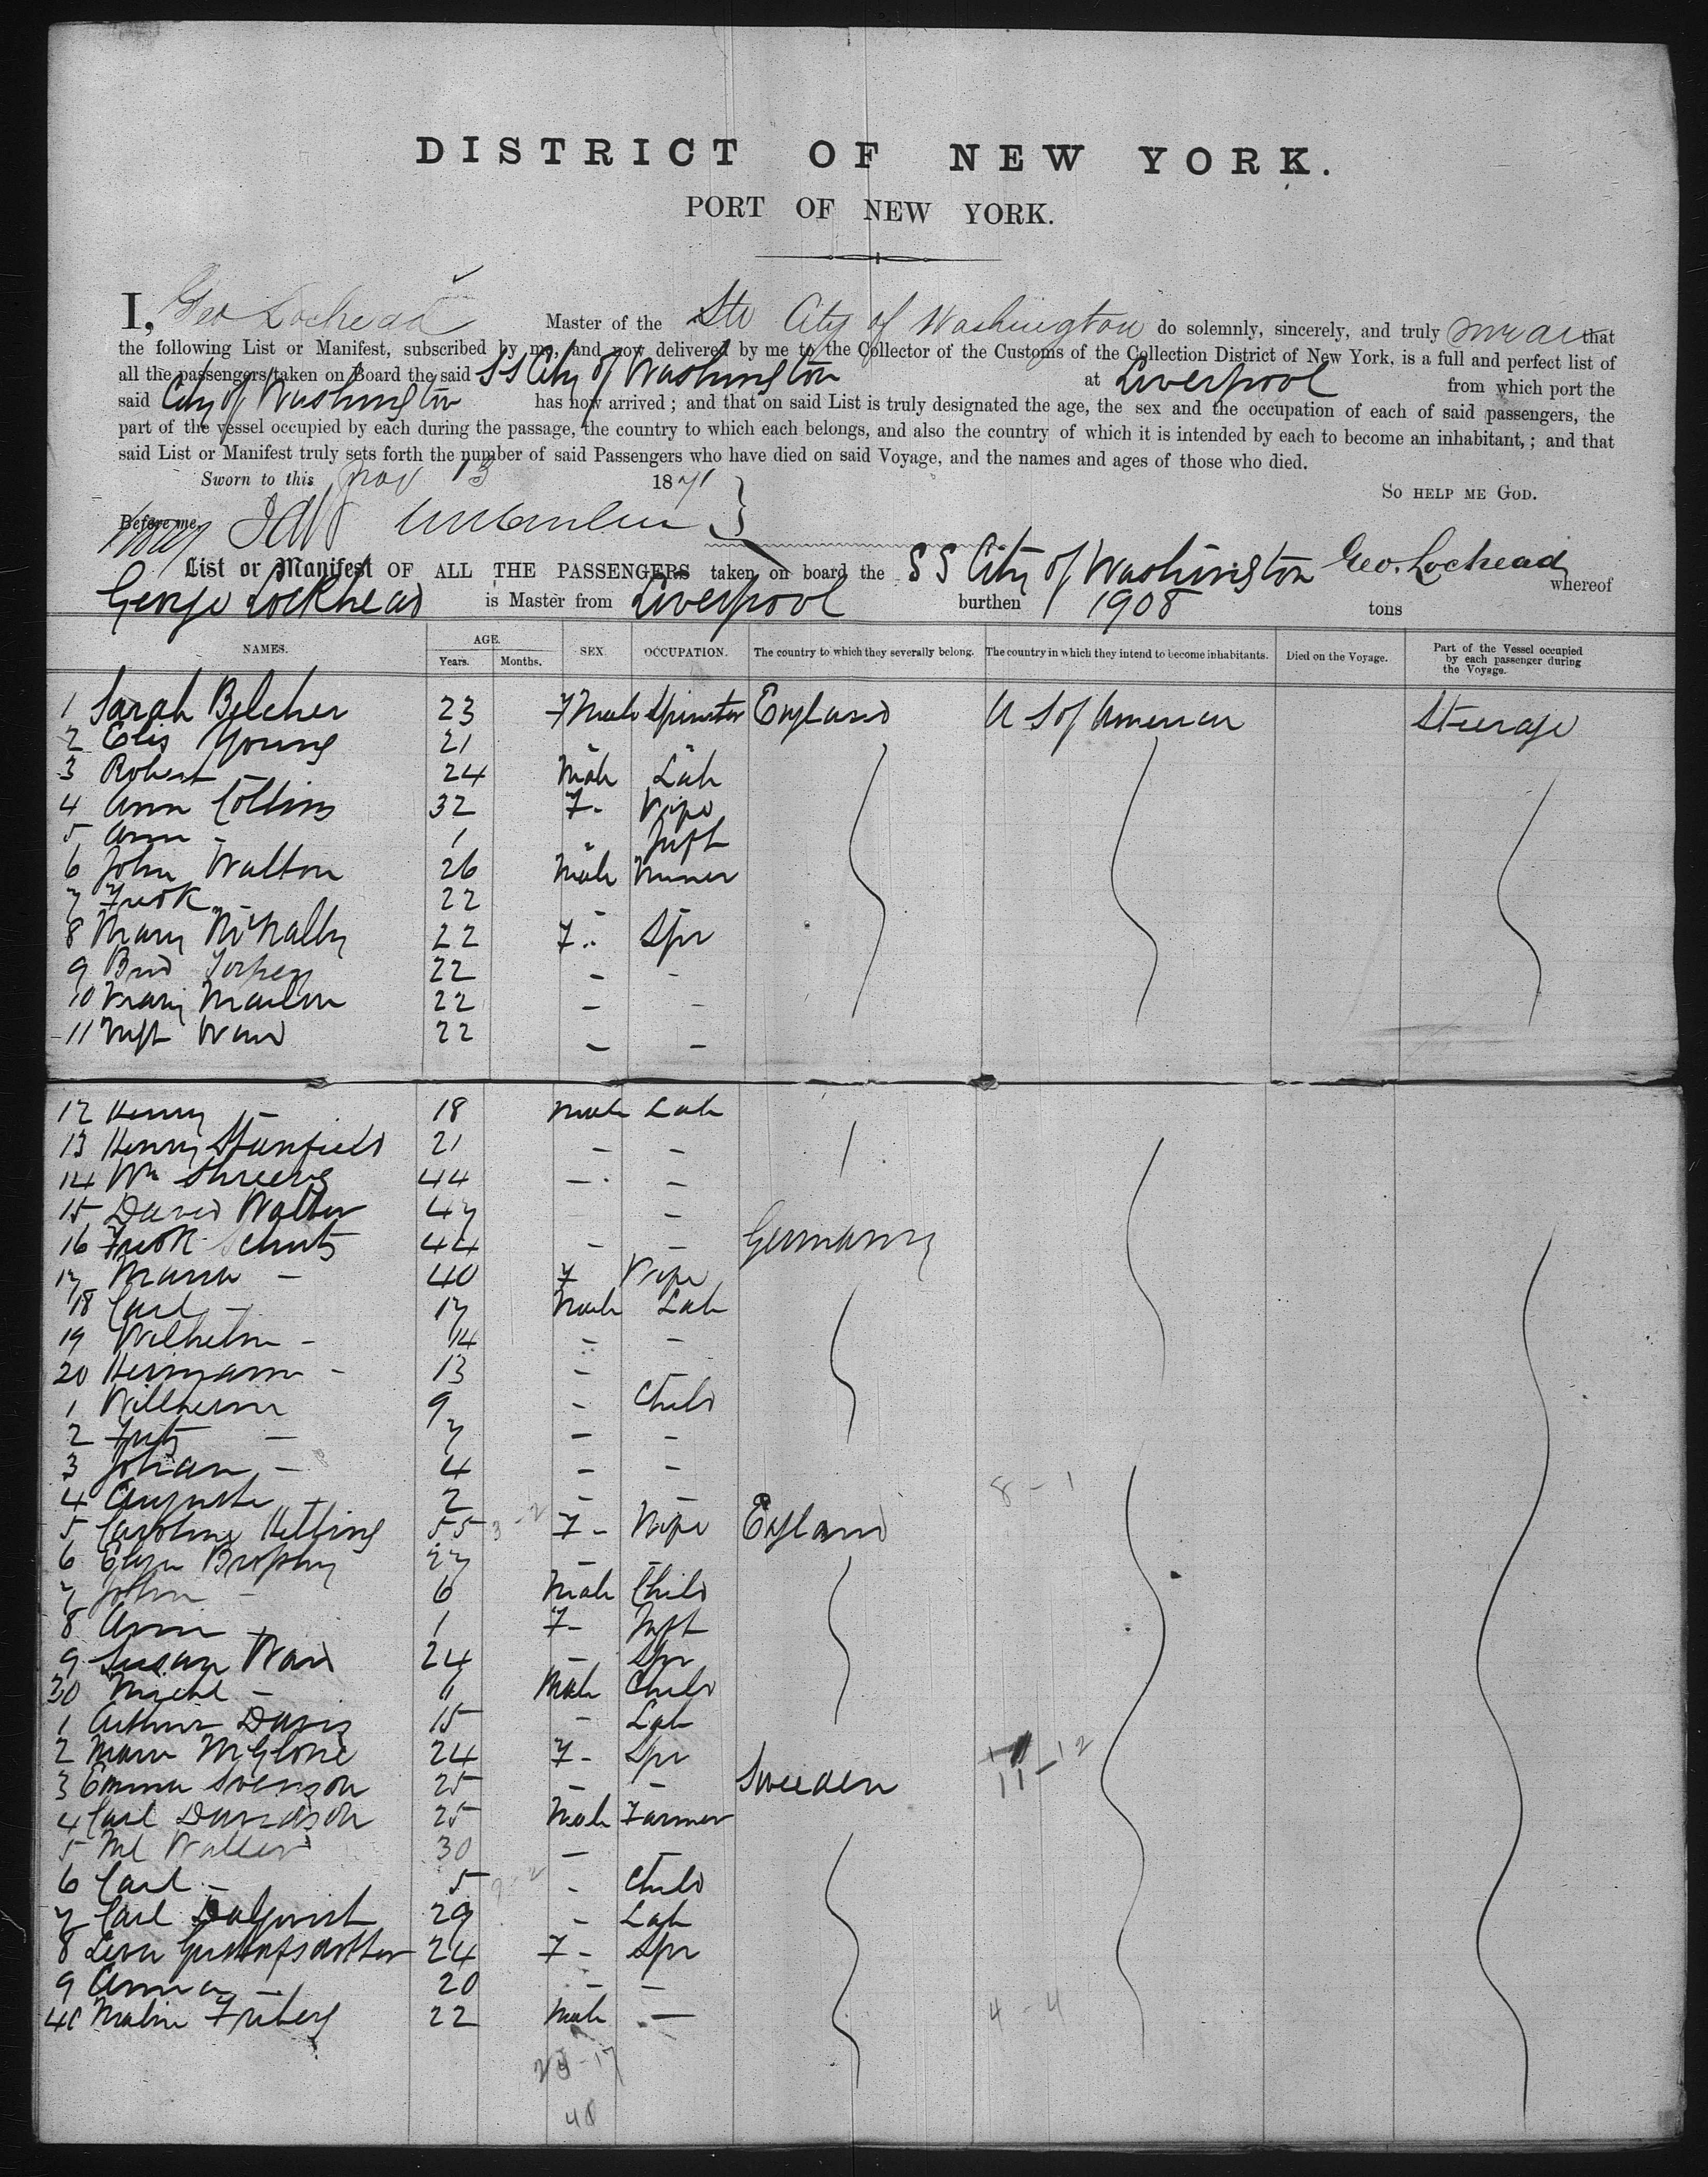 DISTRICT OF NEW YORK.
PORT OF NEW YORK.
I, Geo Lochead Master of the Str City of Washington do solemnly, sincerely, and truly swear that
the following List or Manifest, subscribed by me, and now delivered by me to the Collector of the Customs of the Collection District of New York, is a full and perfect list of
all the passengers taken on Board the said SS City of Washington at Liverpool from which port the
said City of Washington has now arrived; and that on said List is truly designated the age, the sex and the occupation of each of said passengers, the
part of the vessel occupied by each during the passage, the country to which each belongs, and also the country of which it is intended by each to become an inhabitant,; and that
said List or Manifest truly sets forth the number of said Passengers who have died on said Voyage, and the names and ages of those who died.
Sworn to this Nov 13 1871
So help me God.
Before me,
List or Manifest OF ALL THE PASSENGERS taken on board the SS City of Washington Geo. Lochead whereof
George Lockhead is Master from Liverpool burthen 1908 tons
NAMES. AGE. Years. Months. SEX. OCCUPATION. The country to which they severally belong. The country in which they intend to become inhabitants. Died on the Voyage. Part of the Vessel occupied by each passenger during the Voyage.
1 Sarah Belcher 23 Fmale Spinster England U S of America Steerage
2 Elis Young 21 " "
3 Robert - 24 Male Lab
4 Ann Collins 32 F- Wife
5 Ann - 1 " Inft
6 John Walton 26 Male Miner
7 Fredk - 22 - -
8 Mary McNally 22 F- Spr
9 Brid 22 - -
10 Mary 22 - -
11 Ward 22 - -
12 Henry - 18 Male Lab
13 Henry Stanfield 21 - -
14 Wm Shreeve 44 - -
15 David Walter 47 -
16 Fredk Schutz 44 - - Germany
17 Maria - 40 F Wife
18 Carl - 17 Male Lab
19 Wilhelm - 14 - -
20 Hermann - 13 -
1 9 - Child
2 Fritz - 7 - -
3 Johan - 4 - -
4 Auguste - 2 - - 8-1
5 Caroline 55 F- Wife England
6 Eliza Brophy 27 - -
7 John - 6 Male Child
8 Ann - 1 F- Inft
9 Susan Ward 24 - Spr
30 Michl - Male Child
1 Arthur Davis 15 - Lab
2 McGlone 24 F- Spr
3 Emma Svenson 25 - - Sweden 11-12
4 Carl Davidson 25 Male Farmer
5 Ml Waller 30 - -
6 Carl - 5 - Child
7 Carl Dalqvist 29 - Lab
8 Gustafsdotter 24 F- Spr
9 Anna - 20 - -
40 Malin Friberg 22 Male - 4-4
40